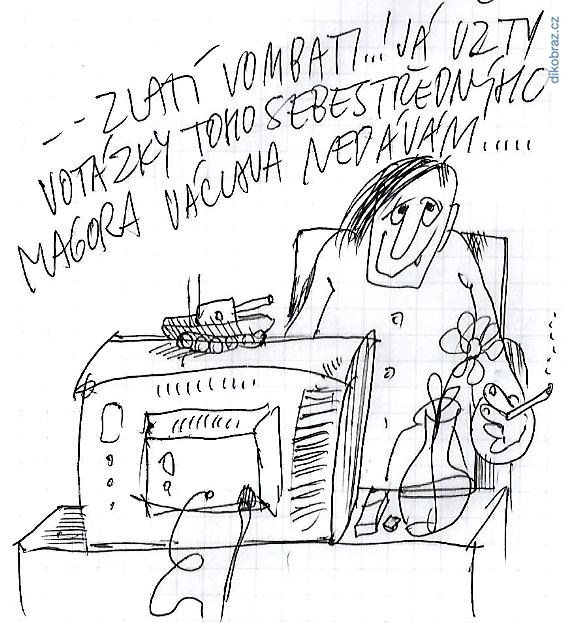 --ZLATÍ VOMBATI...! JÁ UZ TY
VOTÁZKY TOHO SEBESTŘEDNÝHO
MAGORA VÁCLAVA NEDÁVÁM.....
dikobraz.cz